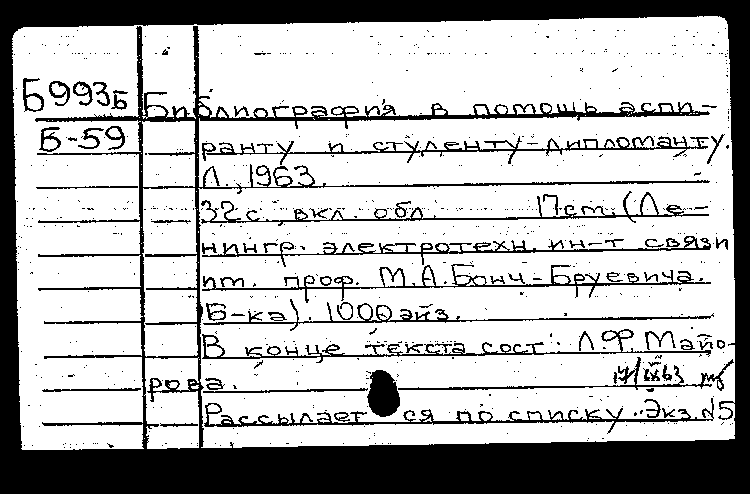 Б993Б Библиография в помощь аспи-
Б-59 ранту и студенту-дипломанту.
Л., 1963.
32с., вкл. обл. 17см. (Ле-
нингр. электротехн. ин-т связи
им. проф. М.А. Бонч-Бруевича.
Б-ка). 1000 экз.
В конце текста сост: Л.Ф. Майо-
рова. 17/IX 63
Рассылается по списку. Экз. N5